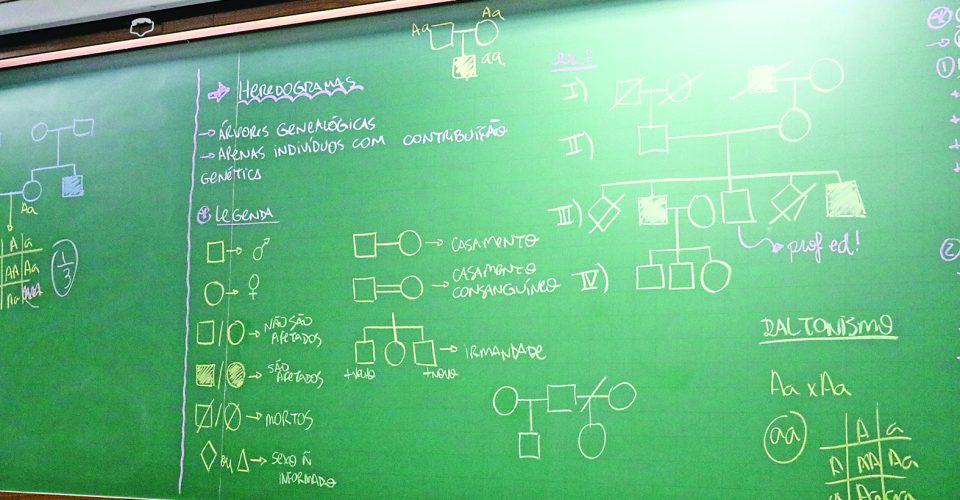 Aa
Aa
aa
HEREDOGRAMAS
→ ÁRVORES GENEALÓGICAS
→ APENAS INDIVÍDUOS COM CONTRIBUIÇÃO
GENÉTICA
* LEGENDA
→ ♂
→ ♀
/ → NÃO SÃO
AFETADOS
/ → SÃO
AFETADOS
/ → MORTOS
OU → SEXO Ñ
INFORMADO
→ CASAMENTO
→ CASAMENTO
CONSANGUÍNEO
→ IRMANDADE
+NOVO
I)
II)
III)
IV)
prof ed!
DALTONISMO
Aa x Aa
aa
A a
A AA Aa
Aa
Aa
A a
AA Aa
Aa
1/3
1)
2)